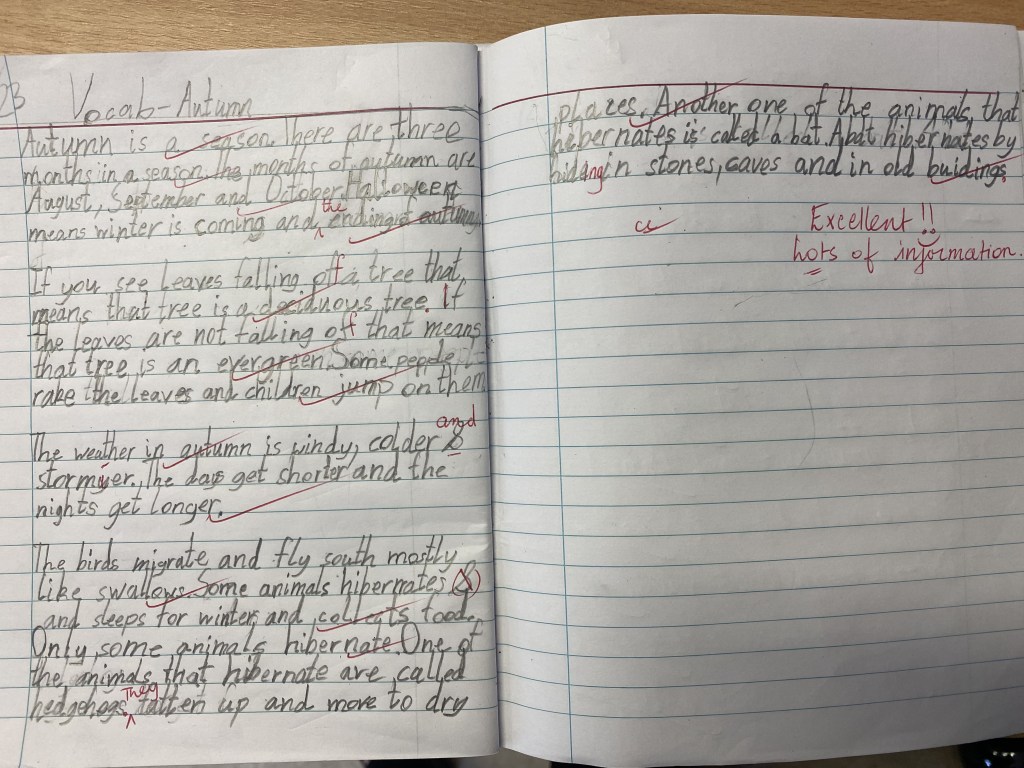 23 Vocab-Autumn
Autumn is a season. There are three
months in a season. The months of autumn are
August, September and October. Halloween
means winter is coming and the ending of autumn.
If you see leaves falling off a tree that
means that tree is a deciduous tree. If
the leaves are not falling off that means
that tree is an evergreen. Some people
rake the leaves and children jump on them
and
The weather in autumn is windy, colder &
stormyer. The days get shorter and the
nights get longer.
The birds migrate and fly south mostly
like swallows. Some animals hibernates
and sleeps for winter and collects food.
Only some animals hibernate. One of
the animals that hibernate are called
They
hedgehogs fatten up and move to dry
places. Another one of the animals that
hibernates is called a bat. A bat hibernates by
hidding in stones, caves and in old buidings.
Excellent!!
Lots of information.